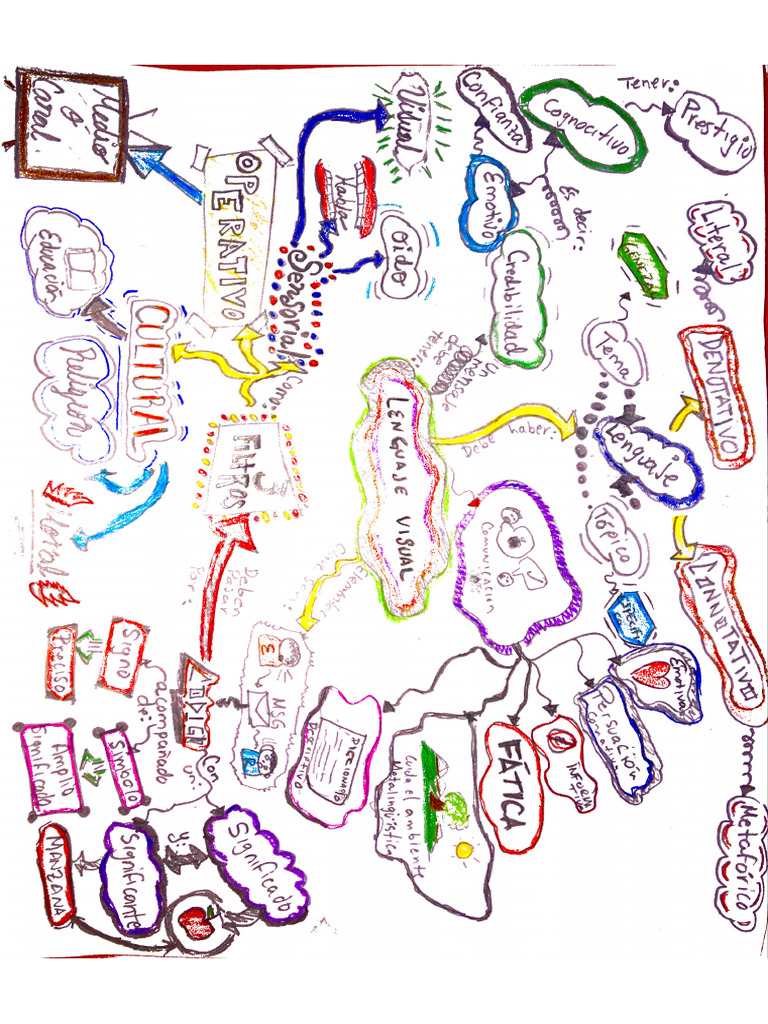 Tener:
Prestigio
Literal
DENOTATIVO
CONNOTATIVO
Metafórico
Cognocitivo
Es decir:
Confianza
Emotivo
Tema
Lenguaje
Tópico
Emotiva
Persuación
Credibilidad
Un
mensaje
debe
tener:
Debe haber:
Comunicación
FÁTICA
Cuida el ambiente
Metalingüística
Visual
Habla
Oido
Sensorial
LENGUAJE VISUAL
Clave ser:
DICCIONARIO
Descriptivo
E
MSG
R
OPERATIVO
Como:
3
FILTROS
Deben
Pasar
Por:
Con
un:
Significado
y:
Significante
MANZANA
acompañado
de:
Signo
Preciso
Símbolo
Amplio
Significado
Medio
O
Canal
CULTURAL
Educación
Religión